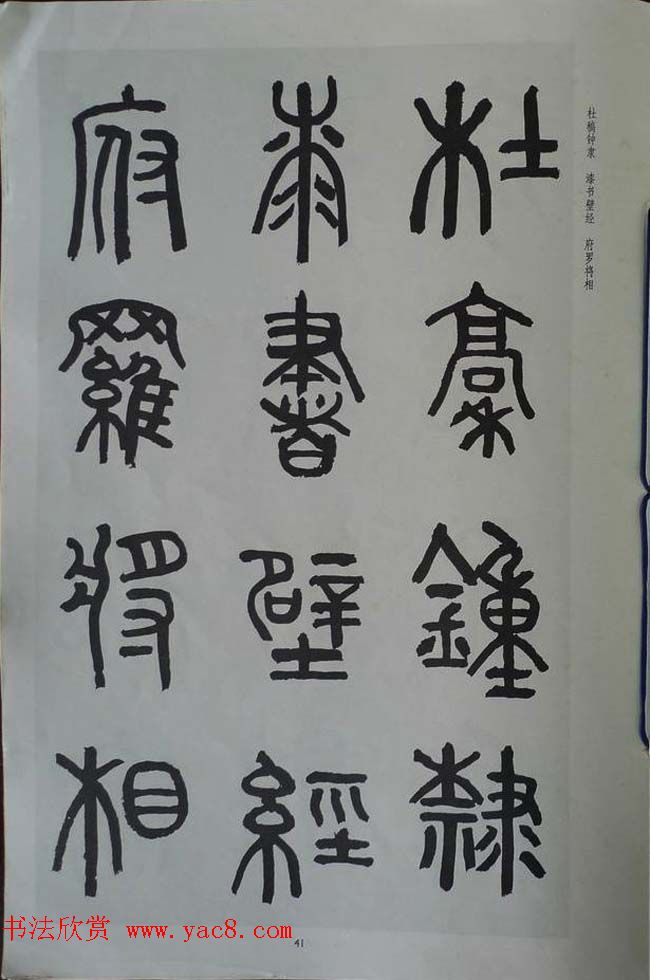 杜稿钟隶 漆书壁经 府罗将相
杜稾鐘隸
桼書壁經
府羅將相
书法欣赏 www.yac8.com
41